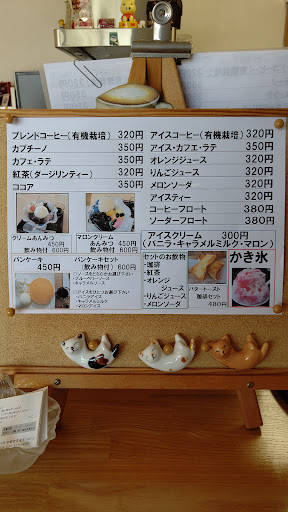 ブレンドコーヒー(有機栽培) 320円
カプチーノ 350円
カフェ・ラテ 350円
紅茶(ダージリンティー) 320円
ココア 350円
アイスコーヒー(有機栽培) 320円
アイス・カフェ・ラテ 350円
オレンジジュース 320円
りんごジュース 320円
メロンソーダ 320円
アイスティー 320円
コーヒーフロート 380円
ソーダーフロート 380円
クリームあんみつ
450円
飲み物付 600円
マロンクリーム
あんみつ 450円
飲み物付 600円
アイスクリーム 300円
(バニラ・キャラメルミルク・マロン)
パンケーキ
450円
パンケーキセット
(飲み物付) 600円
・ブルーベリーソース
・キャラメルソース
・バニラアイス
・キャラメルミルク
・マロンアイス
セットのお飲物
・珈琲
・紅茶
・オレンジ
ジュース
・りんごジュース
・メロンソーダ
バタートースト
珈琲セット
480円
かき氷